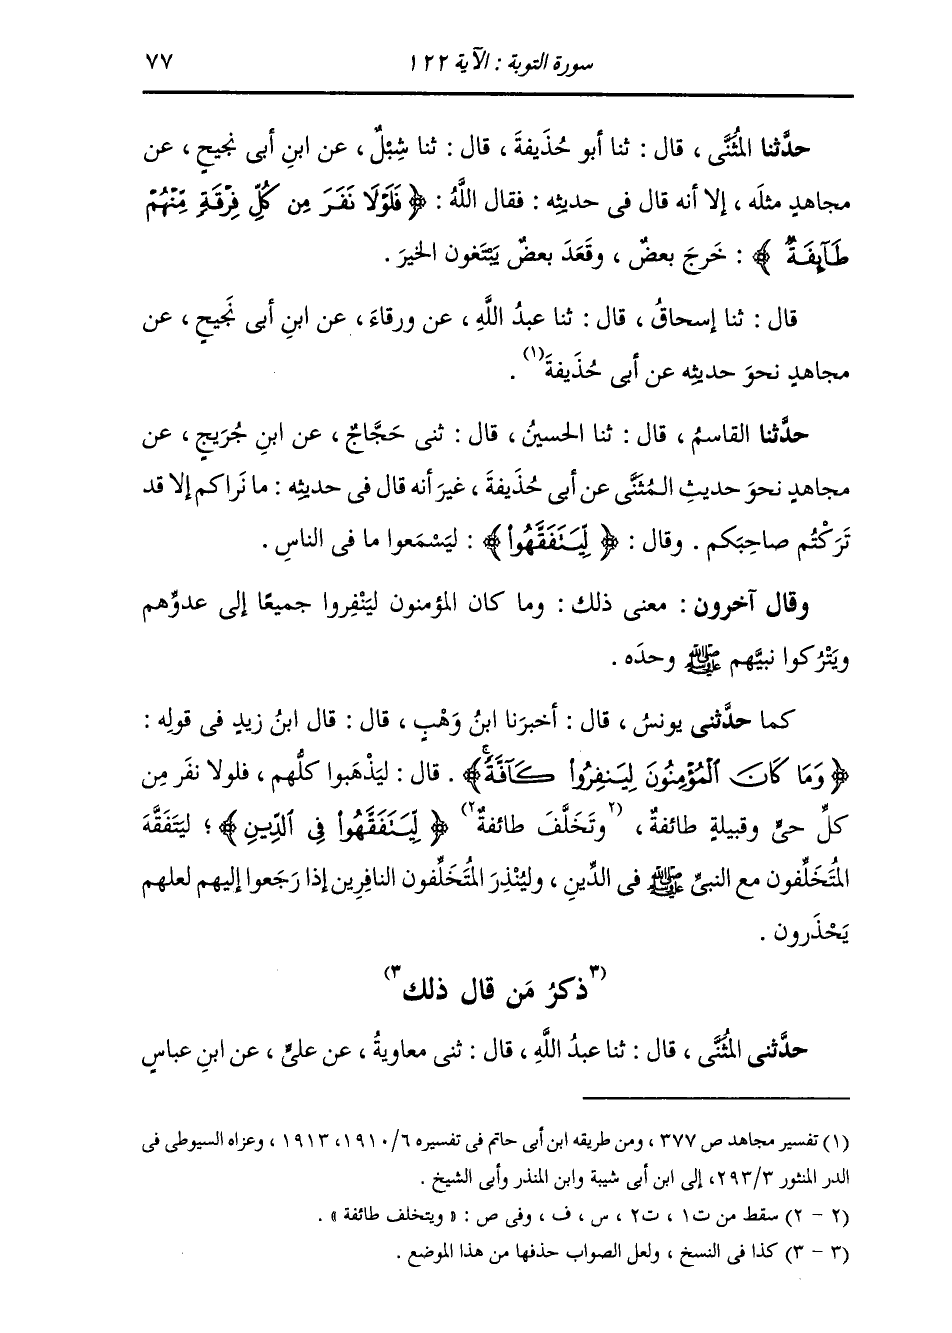 سورة التوبة : الآية ١٢٢ ٧٧
حدَّثنا المُثَنَّى ، قال : ثنا أبو حُذَيفةَ ، قال : ثنا شِبْلٌ ، عن ابنِ أبى نجيحٍ ، عن
مجاهدٍ مثلَه ، إلا أنه قال فى حديثِه : فقال اللَّهُ : ﴿ فَلَوْلَا نَفَرَ مِن كُلِّ فِرْقَةٍ مِّنْهُمْ
طَآئِفَةٌ ﴾ : خَرجَ بعضٌ ، وقَعَدَ بعضٌ يَبْتَغون الخيرَ .
قال : ثنا إسحاقُ ، قال : ثنا عبدُ اللَّهِ ، عن ورقاءَ ، عن ابنِ أبى نَجيحٍ ، عن
مجاهدٍ نحوَ حديثِه عن أبى حُذَيفةَ(١) .
حدَّثنا القاسمُ ، قال : ثنا الحسينُ ، قال : ثنى حَجَّاجٌ ، عن ابنِ جُرَيجٍ ، عن
مجاهدٍ نحوَ حديثِ المُثَنَّى عن أبى حُذَيفةَ ، غيرَ أنه قال فى حديثِه : ما نَراكم إلا قد
تَرَكْتُم صاحِبَكم . وقال : ﴿ لِّيَتَفَقَّهُوا۟ ﴾ : ليَسْمَعوا ما فى الناسِ .
وقال آخرون : معنى ذلك : وما كان المؤمنون ليَنْفِروا جميعًا إلى عدوِّهم
ويَتْرُكوا نبيَّهم ﷺ وحدَه .
كما حدَّثنى يونسُ ، قال : أخبرَنا ابنُ وَهْبٍ ، قال : قال ابنُ زيدٍ فى قولِه :
﴿ وَمَا كَانَ ٱلْمُؤْمِنُونَ لِيَنفِرُوا۟ كَآفَّةً ۚ ﴾ . قال : ليَذْهَبوا كلُّهم ، فلولا نفَر مِن
كلِّ حىٍّ وقبيلةٍ طائفةٌ ، (٢وتَخلَّفَ طائفةٌ٢) ﴿ لِّيَتَفَقَّهُوا۟ فِى ٱلدِّينِ ﴾ ؛ ليَتَفَقَّهَ
المُتَخلِّفون مع النبىِّ ﷺ فى الدِّينِ ، وليُنْذِرَ المُتَخلِّفون النافِرِين إذا رَجَعوا إليهم لعلهم
يَحْذَرون .
(٣ذكرُ مَن قال ذلك٣)
حدَّثنى المُثَنَّى ، قال : ثنا عبدُ اللَّهِ ، قال : ثنى معاويةُ ، عن علىٍّ ، عن ابنِ عباسٍ
(١) تفسير مجاهد ص ٣٧٧ ، ومن طريقه ابن أبى حاتم فى تفسيره ٦/ ١٩١٠، ١٩١٣ ، وعزاه السيوطى فى
الدر المنثور ٣/ ٢٩٣، إلى ابن أبى شيبة وابن المنذر وأبى الشيخ .
(٢ - ٢) سقط من ت١ ، ت٢ ، س ، ف ، وفى ص : « ويتخلف طائفة » .
(٣ - ٣) كذا فى النسخ ، ولعل الصواب حذفها من هذا الموضع .